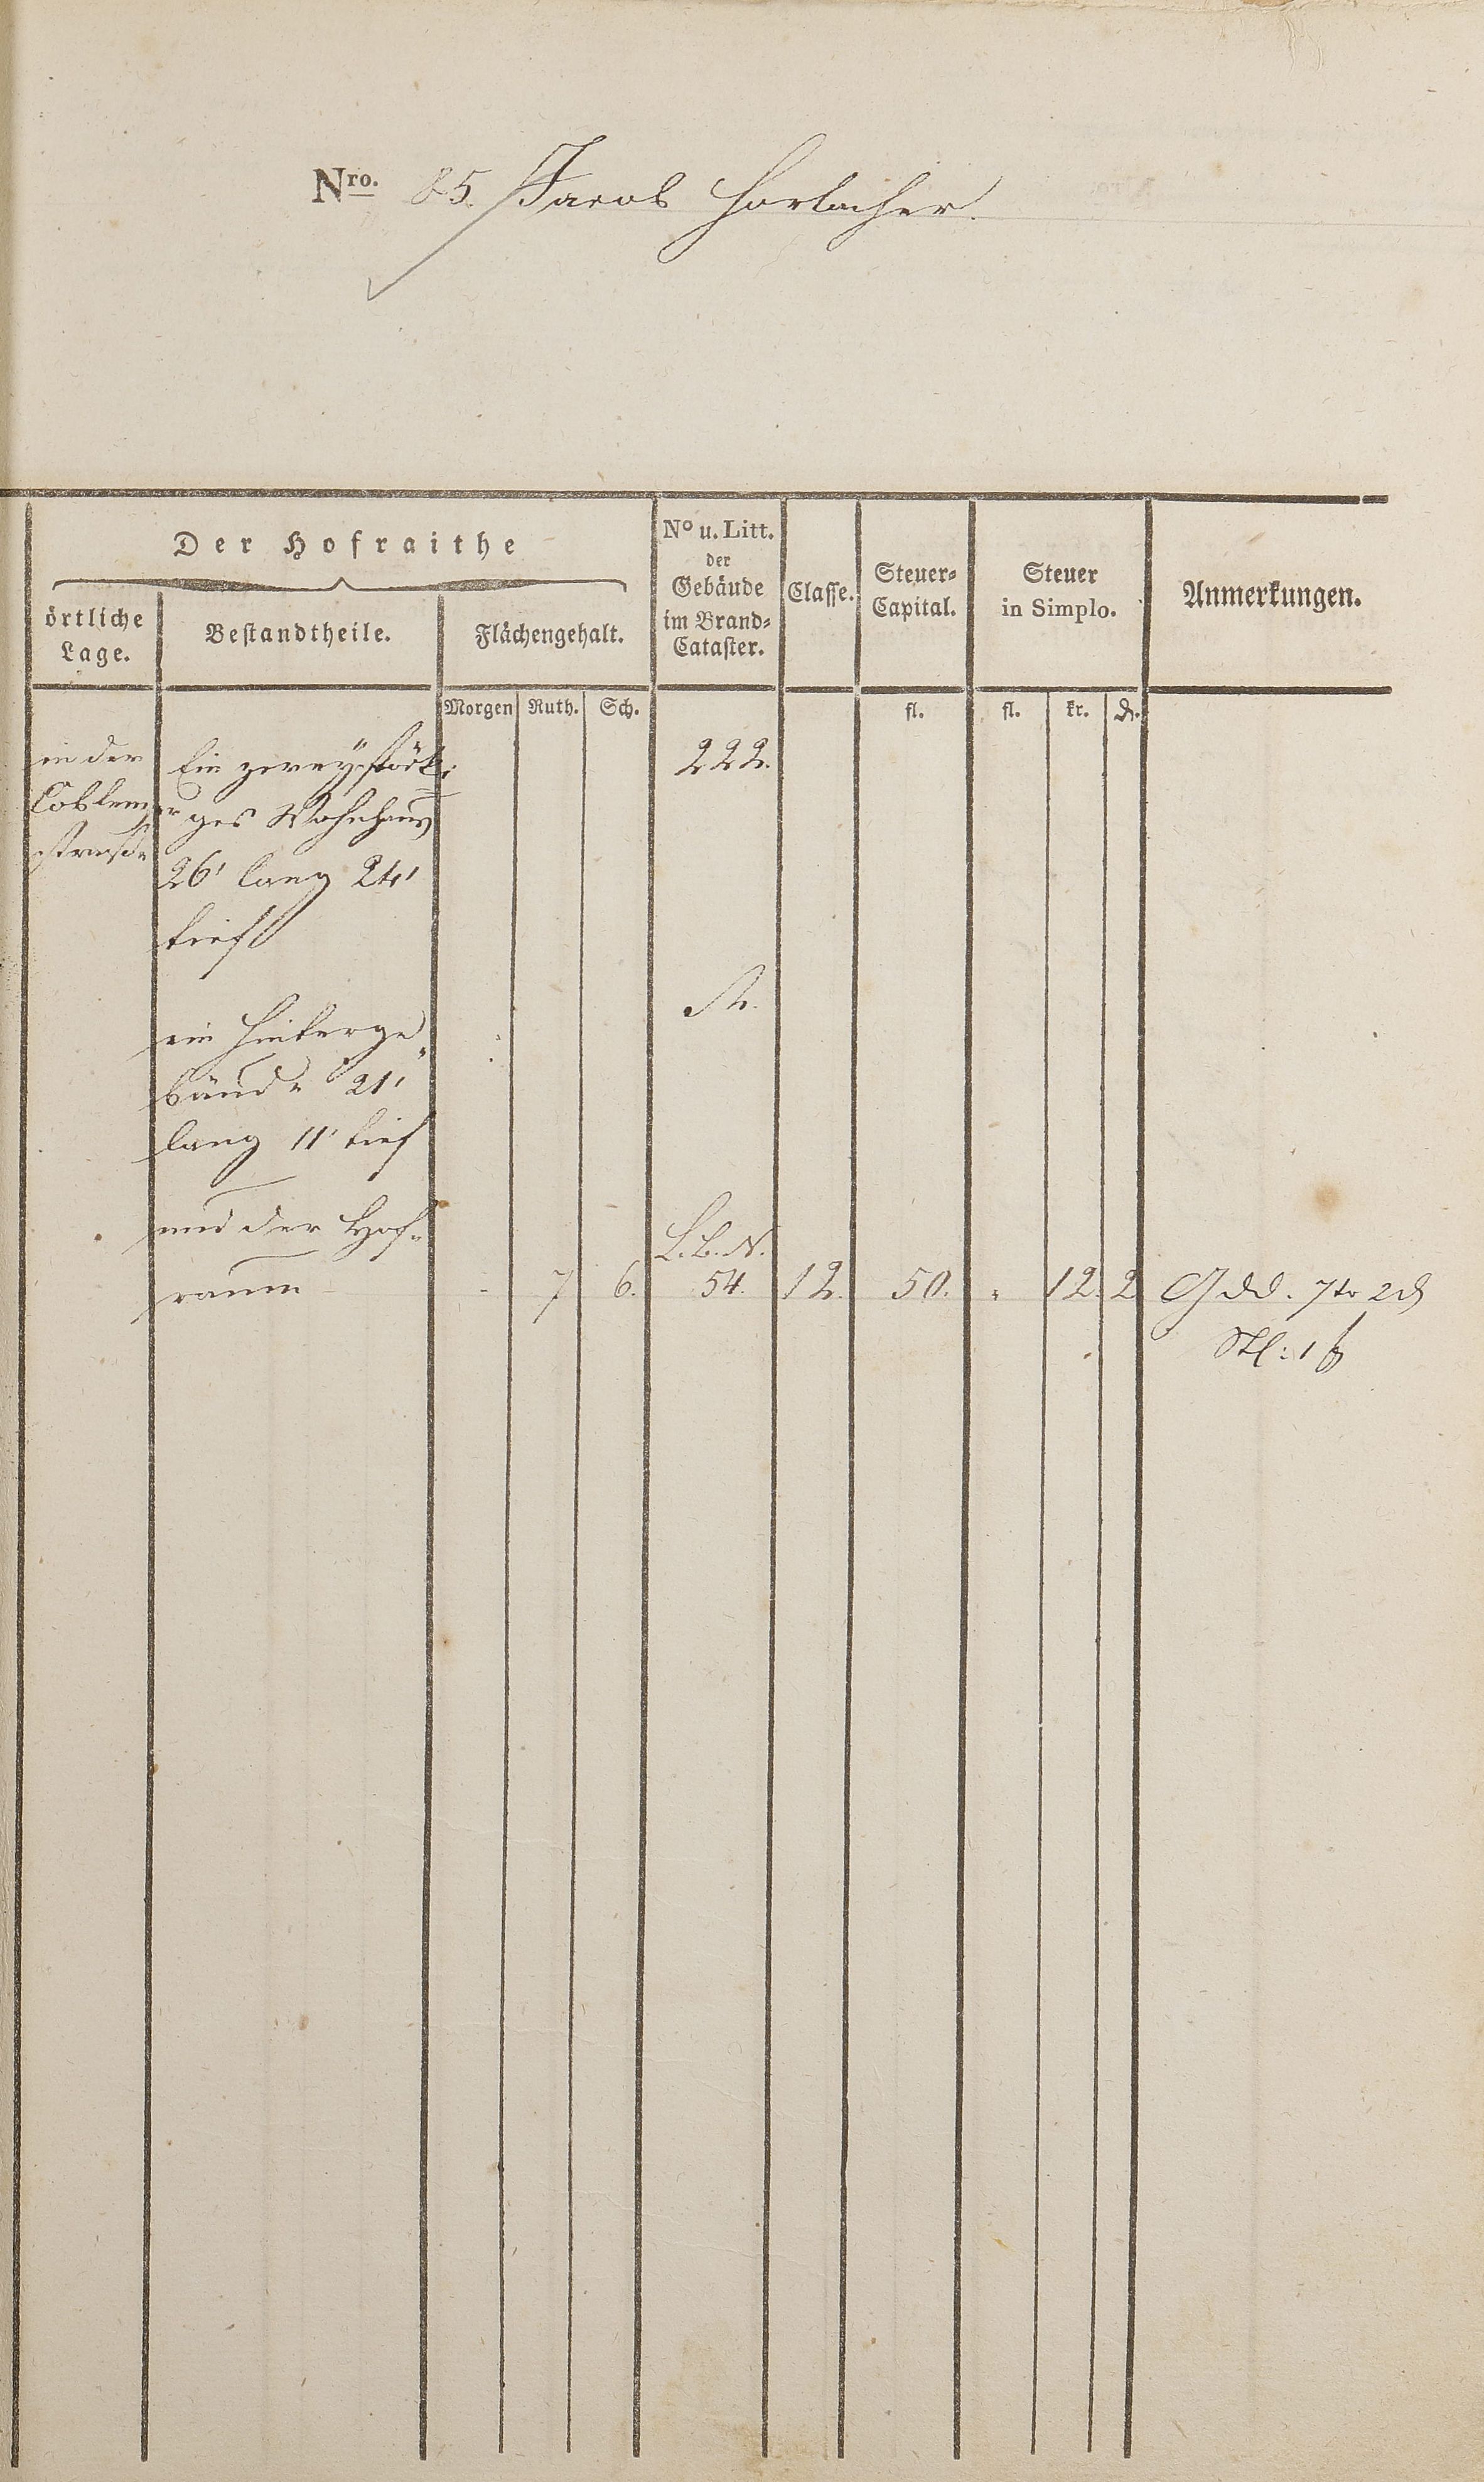 Nro. 85. Jacob Horlacher.
Der Hofraithe
örtliche Lage.
Bestandtheile.
Flächengehalt.
No u. Litt. der Gebäude im Brand-Cataster.
Classe.
Steuer-Capital.
Steuer in Simplo.
Anmerkungen.
Morgen Ruth. Sch. fl. fl. kr. ₰.
in der Ein zweystöki- 222.
Coblenzer ges Wohnhaus
straße 26' lang 24'
tief
ein Hinterge-
bäude 21'
lang 11' tief
und der Hof- L. B. N.
raum - 7 6. 54. 12. 50. " 12. 2